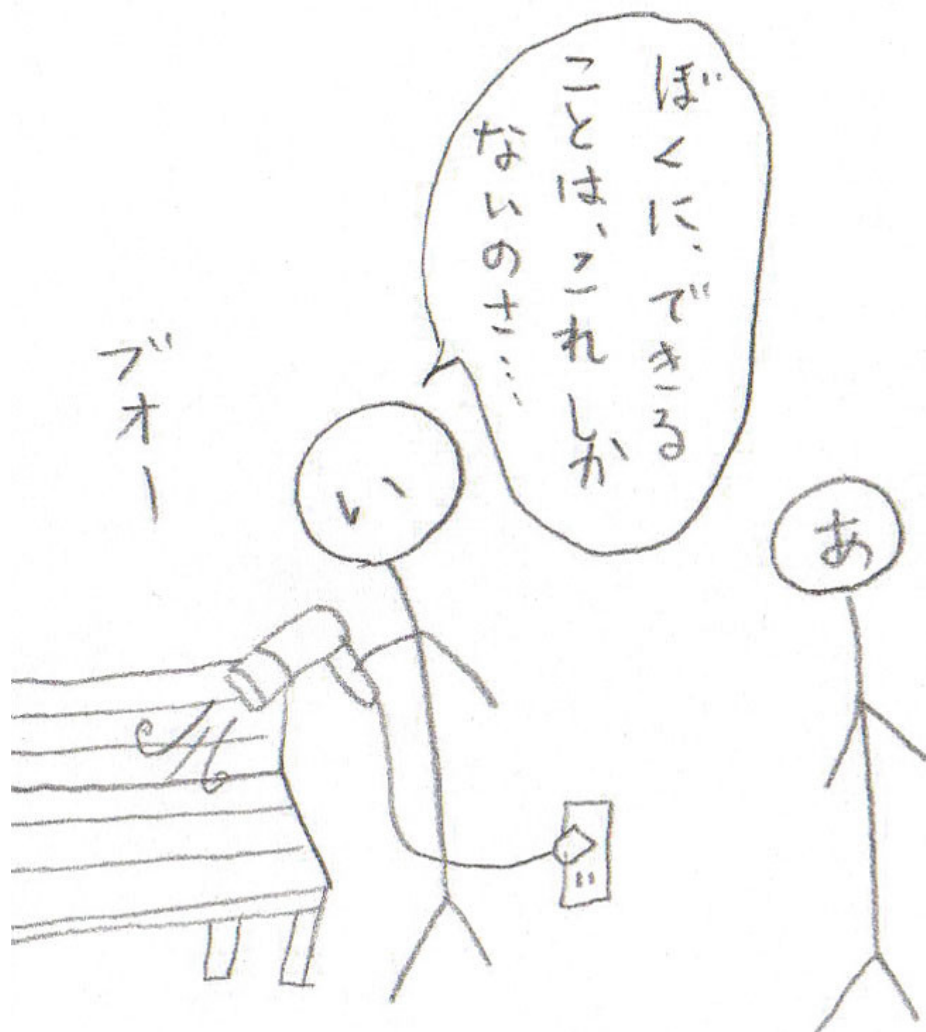 ぼくに、できる
ことは、これしか
ないのさ…
ブオー
い
あ